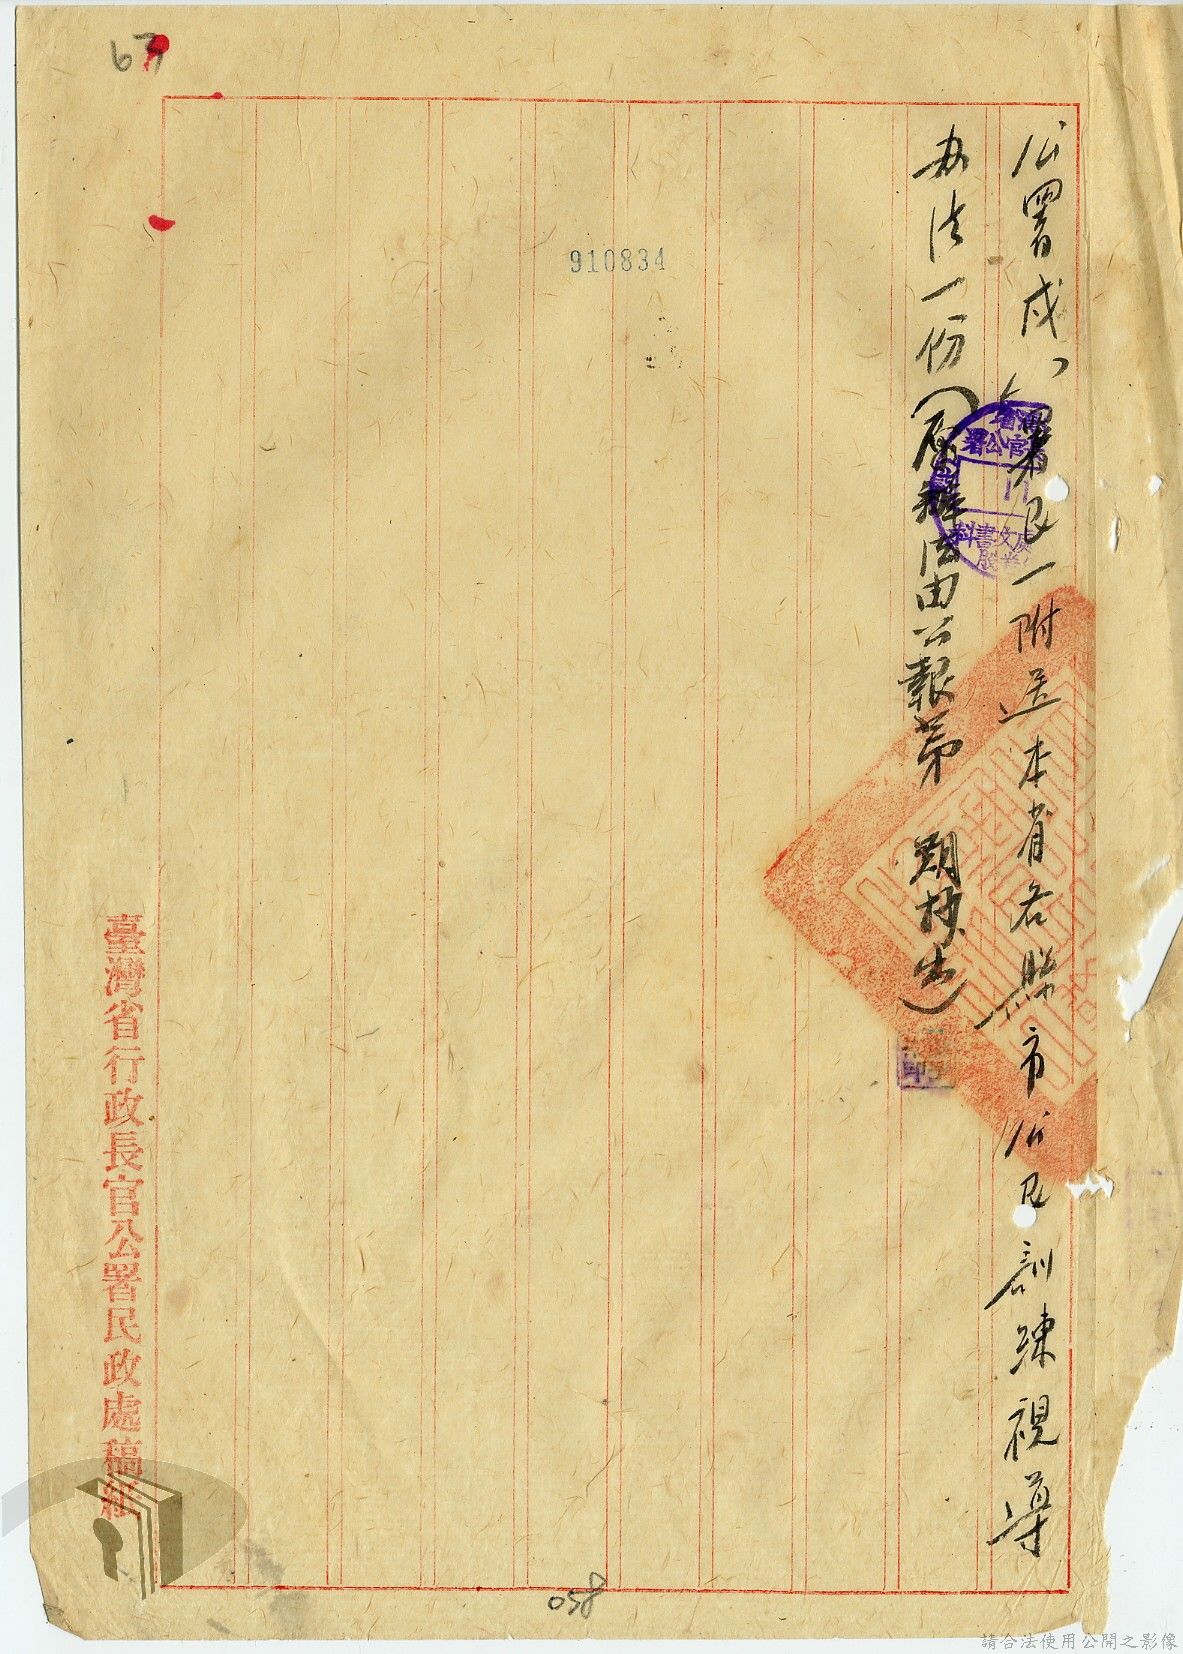 公署戍 署民一附送本省各縣市公民訓練視導
办法一份(原辦法由公報第 期抄出)
910834
臺灣省行政長官公署民政處稿紙
67
058
請合法使用公開之影像